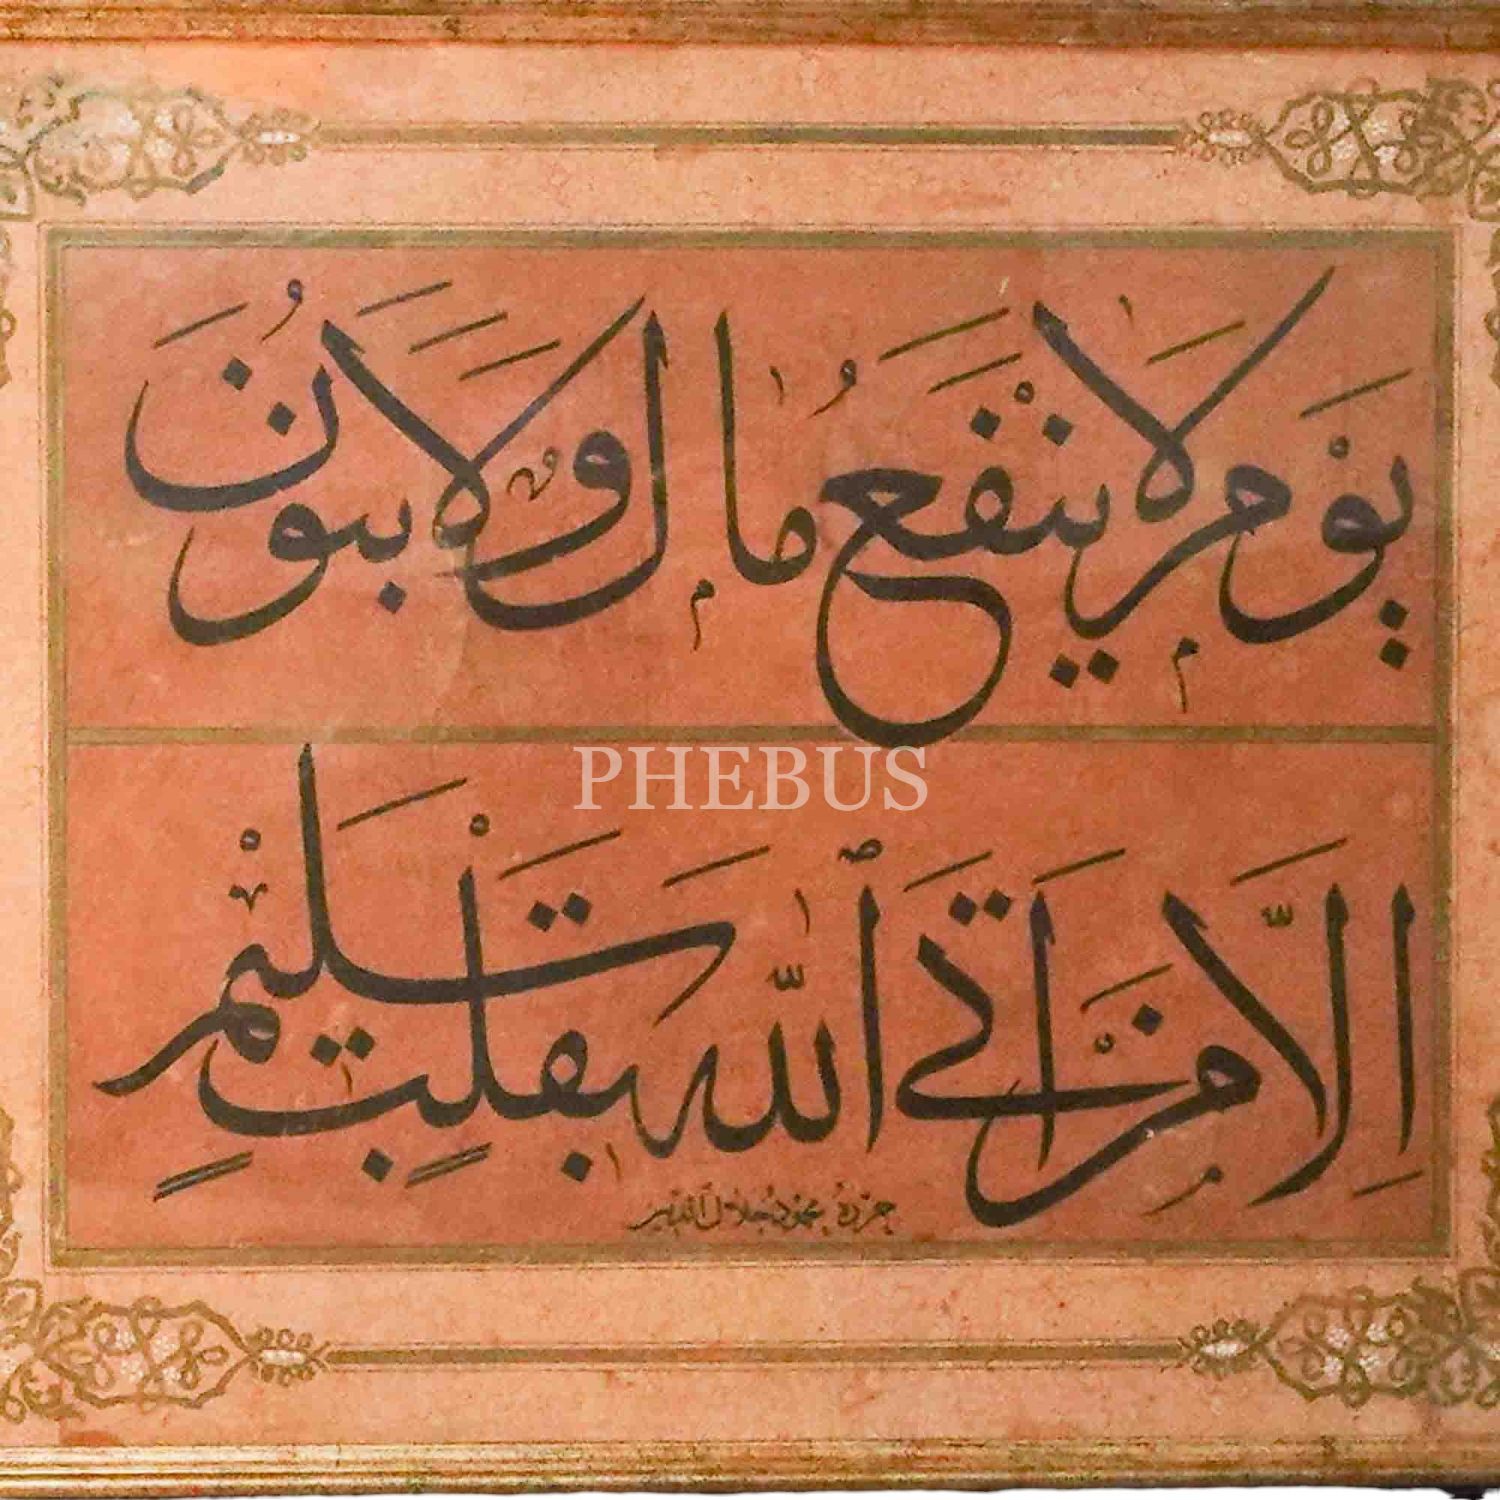 يَوْمَ لَا يَنْفَعُ مَالٌ وَلَا بَنُونَ
PHEBUS
اِلَّا مَنْ اَتَى اللّٰهَ بِقَلْبٍ سَلِيمٍ
حرره محمود جلال الدين